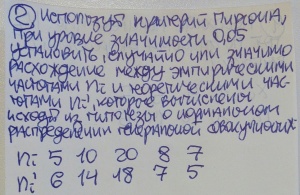 ② Используя критерий Пирсона,
при уровне значимости 0,05
установить, случайно или значимо
расхождение между эмпирическими
частотами ni и теоретическими час-
тотами ni', которые вычислены
исходя из гипотезы о нормальном
распределении генеральной совокупности.
ni 5 10 20 8 7
ni' 6 14 18 7 5